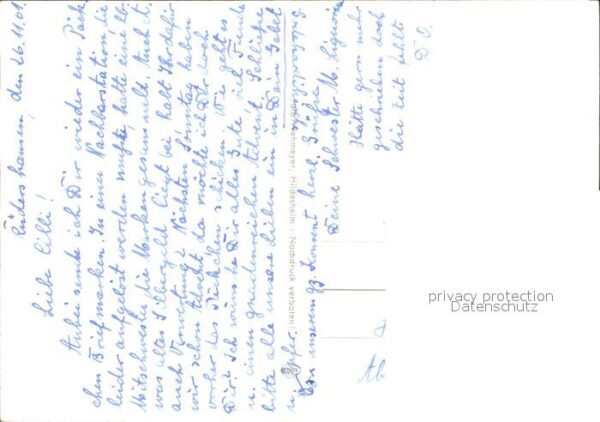 Rüdershausen, den 26.11.61
Liebe Cilli!
Anbei sende ich Dir wieder ein Päck
chen Briefmarken. In einer Nachbarstation, die
leider aufgelöst werden mußte, hatte eine lb.
Mitschwester die Marken gesammelt. Auch et
was altes Silbergeld liegt bei. Habt Ihr dafür
auch Verwertung? Nächsten Sonntag haben
wir schon Advent, da möchte ich Dir doch
vorher das Päckchen schicken. Wie geht es
Dir? Ich wünsche Dir alles Gute, viel Freude
u. einen gnadenreichen Advent. Schließe
bitte alle unsere Lieben ein in Dein Gebet
u. Opfer.
Von unserem kommt herzl. Grüße
Deine Schwester M. Liguoria
Hätte gern mehr
geschrieben doch
die Zeit fehlt
D. O.
Hildesheim - Nachdruck verboten!
Ab
privacy protection
Datenschutz